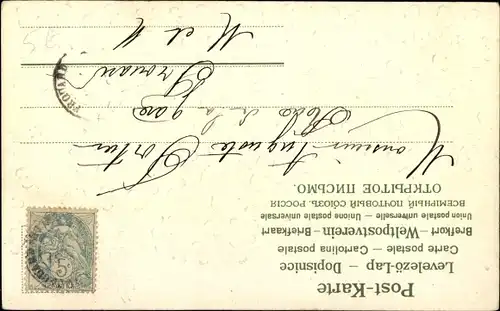 Post-Karte
Levelező-Lap — Dopisnice
Carte postale — Cartolina postale
Brefkort — Weltpostverein — Briefkaart
Union postale universelle — Unione postale universale
ВСЕМІРНЫЙ ПОЧТОВЫЙ СОЮЗЪ. РОССІЯ
ОТКРЫТОЕ ПИСЬМО.
Monsieur Auguste
de la gare
Frouard
M et M
FROUARD
5